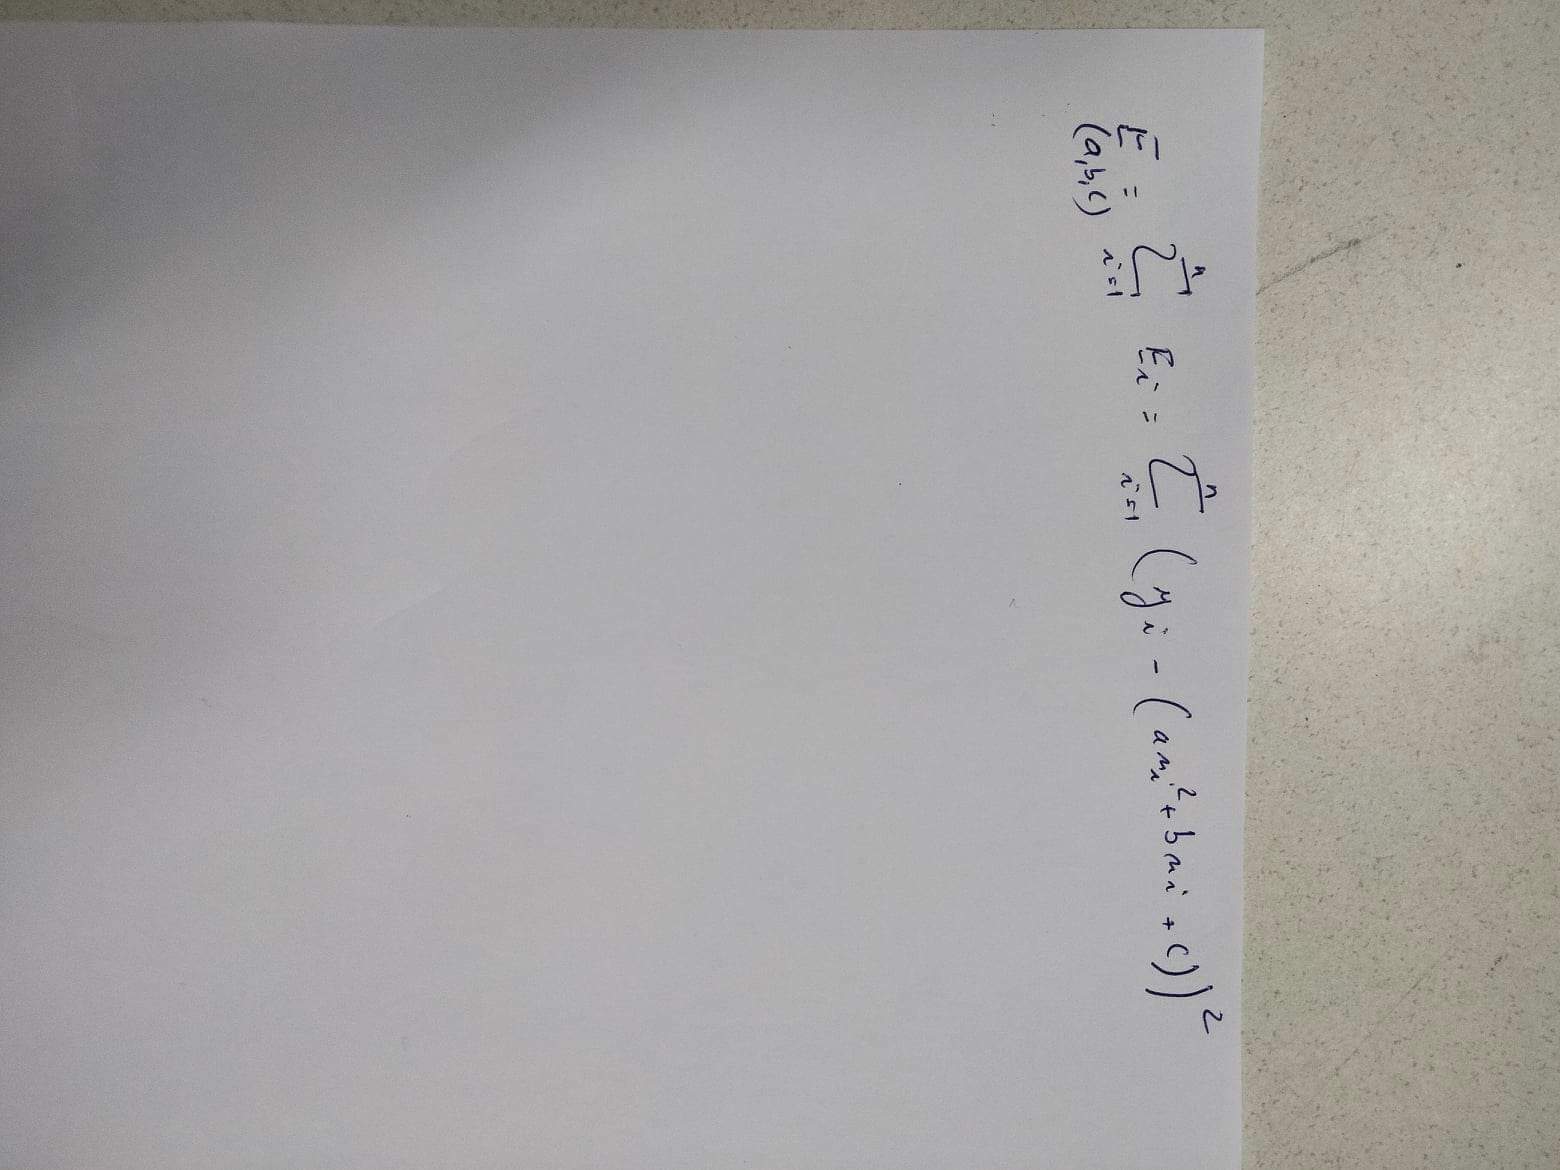 E(a,b,c) = \sum_{i=1}^{n} E_i = \sum_{i=1}^{n} (y_i - (ax_i^2 + bx_i + c))^2